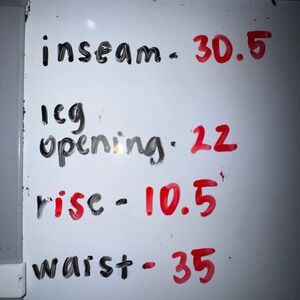 inseam - 30.5
leg
opening - 22
rise - 10.5
waist - 35